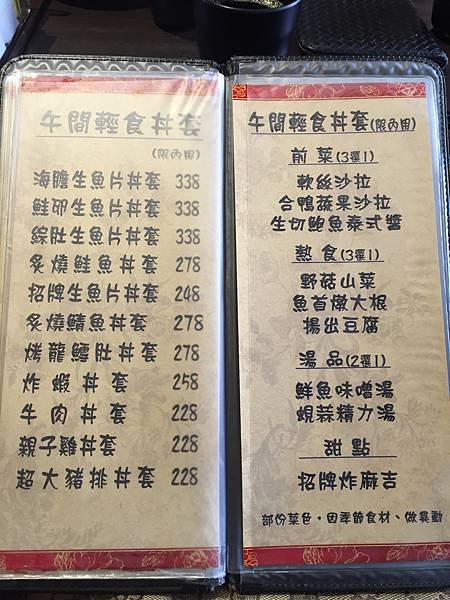 午間輕食丼套
(限內用)
海膽生魚片丼套 338
鮭卵生魚片丼套 338
綜肚生魚片丼套 338
炙燒鮭魚丼套 278
招牌生魚片丼套 248
炙燒鯖魚丼套 278
烤龍鱈肚丼套 278
炸蝦丼套 258
牛肉丼套 228
親子雞丼套 228
超大豬排丼套 228
午間輕食丼套(限內用)
前菜(3選1)
軟絲沙拉
合鴨蔬果沙拉
生切鮑魚泰式醬
熱食(3選1)
野菇山菜
魚首燉大根
揚出豆腐
湯品(2選1)
鮮魚味噌湯
蜆蒜精力湯
甜點
招牌炸麻吉
部份菜色，因季節食材、做異動